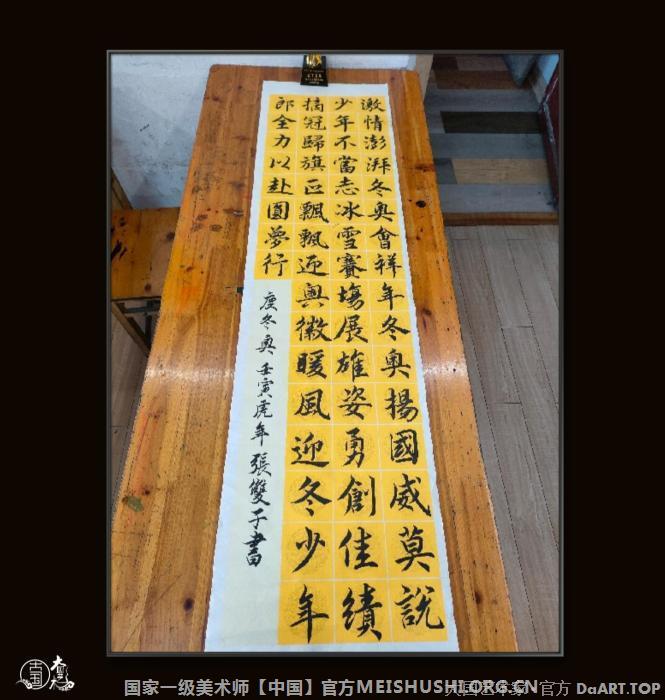 激情澎湃冬奥會祥年冬奥揚國威莫説
少年不當志冰雪賽塲展雄姿勇創佳績
摘冠歸旗正飄飄迎奥徽暖風迎冬少年
郎全力以赴圓夢行
慶冬奥 壬寅虎年 張雙子書
国家一级美术师【中国】官方MEISHUSHI.ORG.CN 官方 DaART.TOP